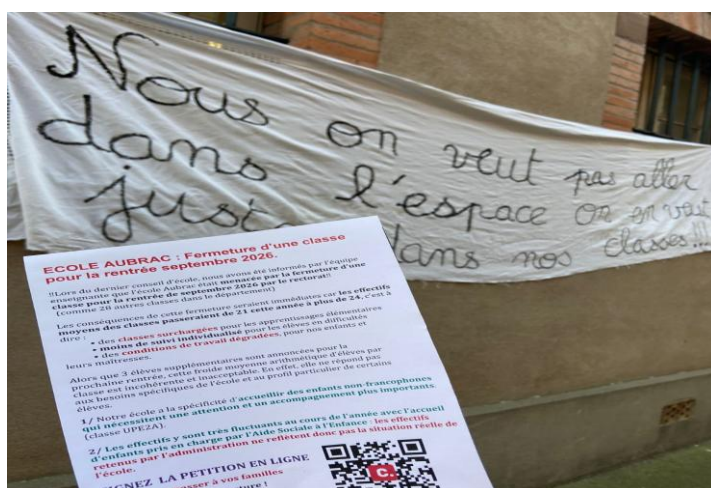 Nous on veut pas aller
dans l'espace on en veut
juste dans nos classes!!!
ECOLE AUBRAC : Fermeture d'une classe
pour la rentrée septembre 2026.
!!Lors du dernier conseil d'école, nous avons été informés par l'équipe
enseignante que l'école Aubrac était menacée par la fermeture d'une
classe pour la rentrée de septembre 2026 par le rectorat!!
(comme 28 autres classes dans le département)
Les conséquences de cette fermeture seraient immédiates car les effectifs
moyens des classes passeraient de 21 cette année à plus de 24, c'est à
dire :
• des classes surchargées pour les apprentissages élémentaires
• moins de suivi individualisé pour les élèves en difficultés
• des conditions de travail dégradées, pour nos enfants et
leurs maîtresses.
Alors que 3 élèves supplémentaires sont annoncées pour la
prochaine rentrée, cette froide moyenne arithmétique d'élèves par
classe est incohérente et inacceptable. En effet, elle ne répond pas
aux besoins spécifiques de l'école et au profil particulier de certains
élèves.
1/ Notre école a la spécificité d'accueillir des enfants non-francophones
qui nécessitent une attention et un accompagnement plus importants
(classe UPE2A).
2/ Les effectifs y sont très fluctuants au cours de l'année avec l'accueil
d'enfants pris en charge par l'Aide Sociale à l'Enfance : les effectifs
retenus par l'administration ne reflètent donc pas la situation réelle de
l'école.
GNEZ LA PETITION EN LIGNE
asser à vos familles
ature !
C.